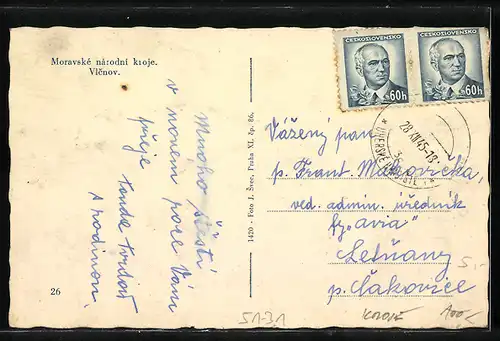 Moravské národní kroje.
Vlčnov.
ČESKOSLOVENSKO
60h
ČESKOSLOVENSKO
60h
28.XII.45-18
Mnoho štěstí
v novém roce Vám
přeje
a rodinou.
1420 - Foto J. Švec, Praha XI. žp. 86.
Vážený pan
p. Frant. Makovička,
ved. admin. úředník
fy „Avia"
Letňany
p. Čakovice
26
51-31
KROJE
5,-